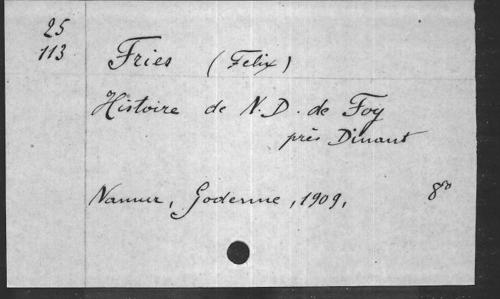 25
113
Fries (Felix)
Histoire de N.D. de Foy
près Dinant
Namur, Godenne, 1909, 8º